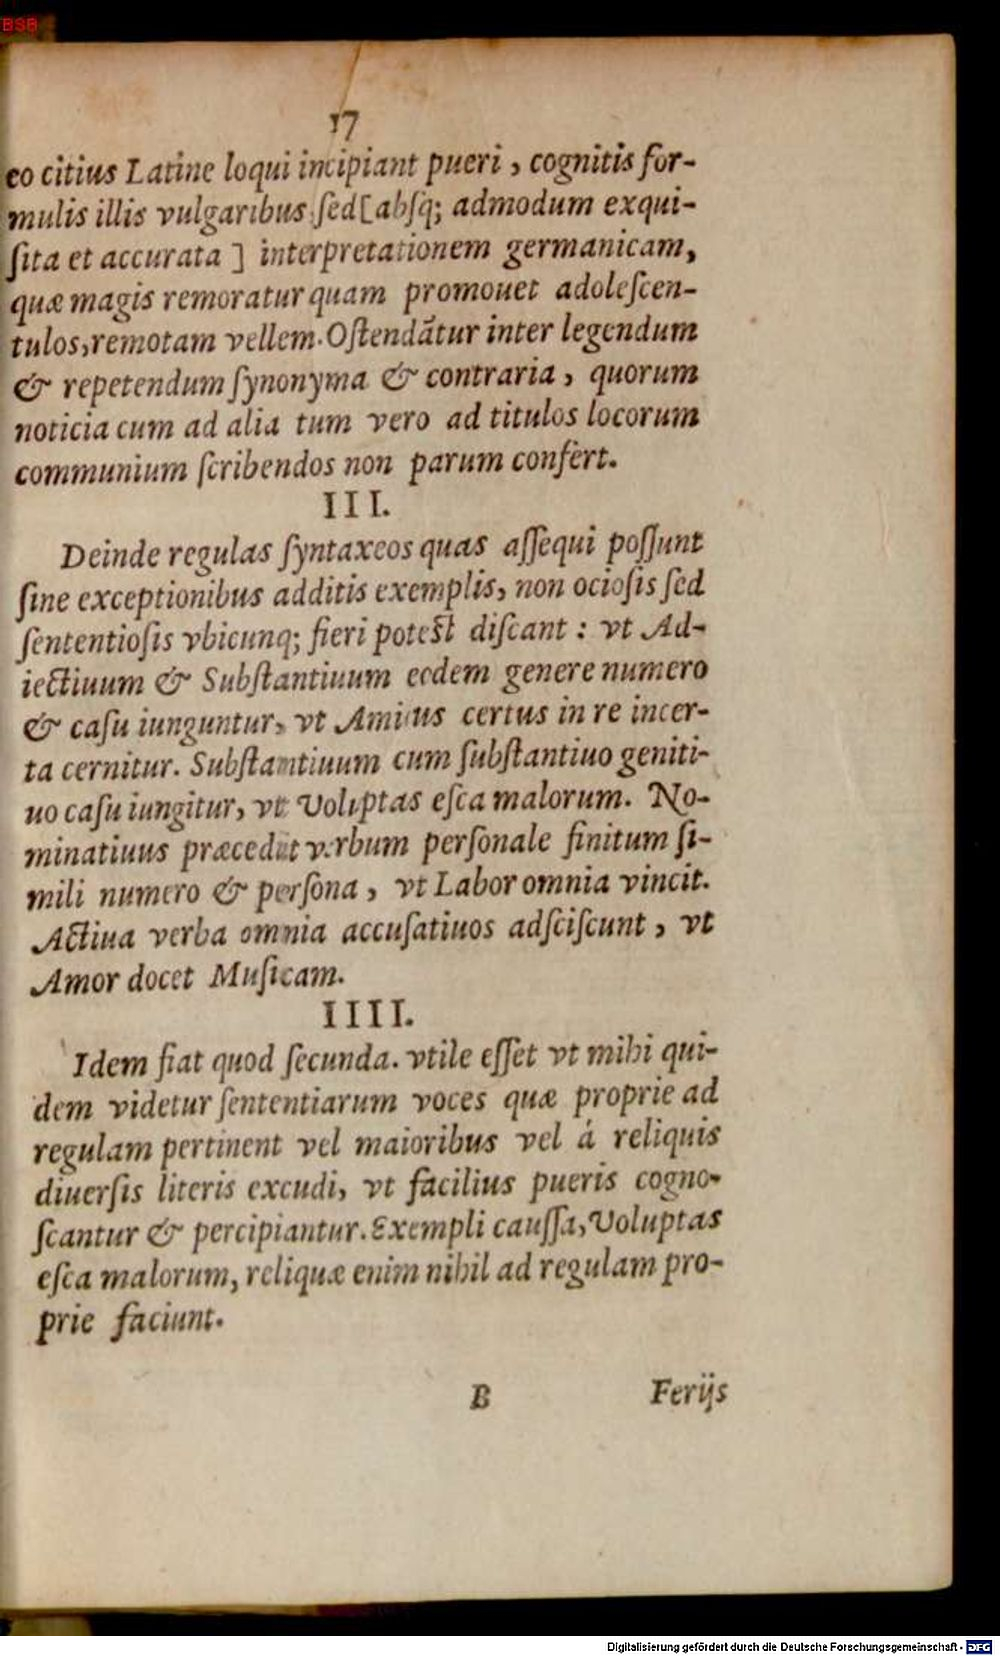 BSB
17
eo citius Latine loqui incipiant pueri, cognitis for-
mulis illis vulgaribus sed [absq; admodum exqui-
ſita et accurata] interpretationem germanicam,
quæ magis remoratur quam promouet adoleſcen-
tulos, remotam vellem. Oſtendãtur inter legendum
& repetendum ſynonyma & contraria, quorum
noticia cum ad alia tum vero ad titulos locorum
communium ſcribendos non parum confert.
III.
Deinde regulas ſyntaxeos quas aſſequi poſſunt
ſine exceptionibus additis exemplis, non ocioſis ſed
ſententioſis vbicunq; fieri poteſt diſcant: vt Ad-
iectiuum & Subſtantiuum eodem genere numero
& caſu iunguntur, vt Amicus certus in re incer-
ta cernitur. Subſtantiuum cum ſubſtantiuo geniti-
uo caſu iungitur, vt Voluptas eſca malorum. No-
minatiuus præcedit verbum perſonale finitum ſi-
mili numero & perſona, vt Labor omnia vincit.
Actiua verba omnia accuſatiuos adſciſcunt, vt
Amor docet Muſicam.
IIII.
Idem fiat quod ſecunda. vtile eſſet vt mihi qui-
dem videtur ſententiarum voces quæ proprie ad
regulam pertinent vel maioribus vel á reliquis
diuerſis literis excudi, vt facilius pueris cogno-
ſcantur & percipiantur. Exempli cauſſa, Voluptas
eſca malorum, reliquæ enim nihil ad regulam pro-
prie faciunt.
B Ferijs
Digitalisierung gefördert durch die Deutsche Forschungsgemeinschaft - DFG